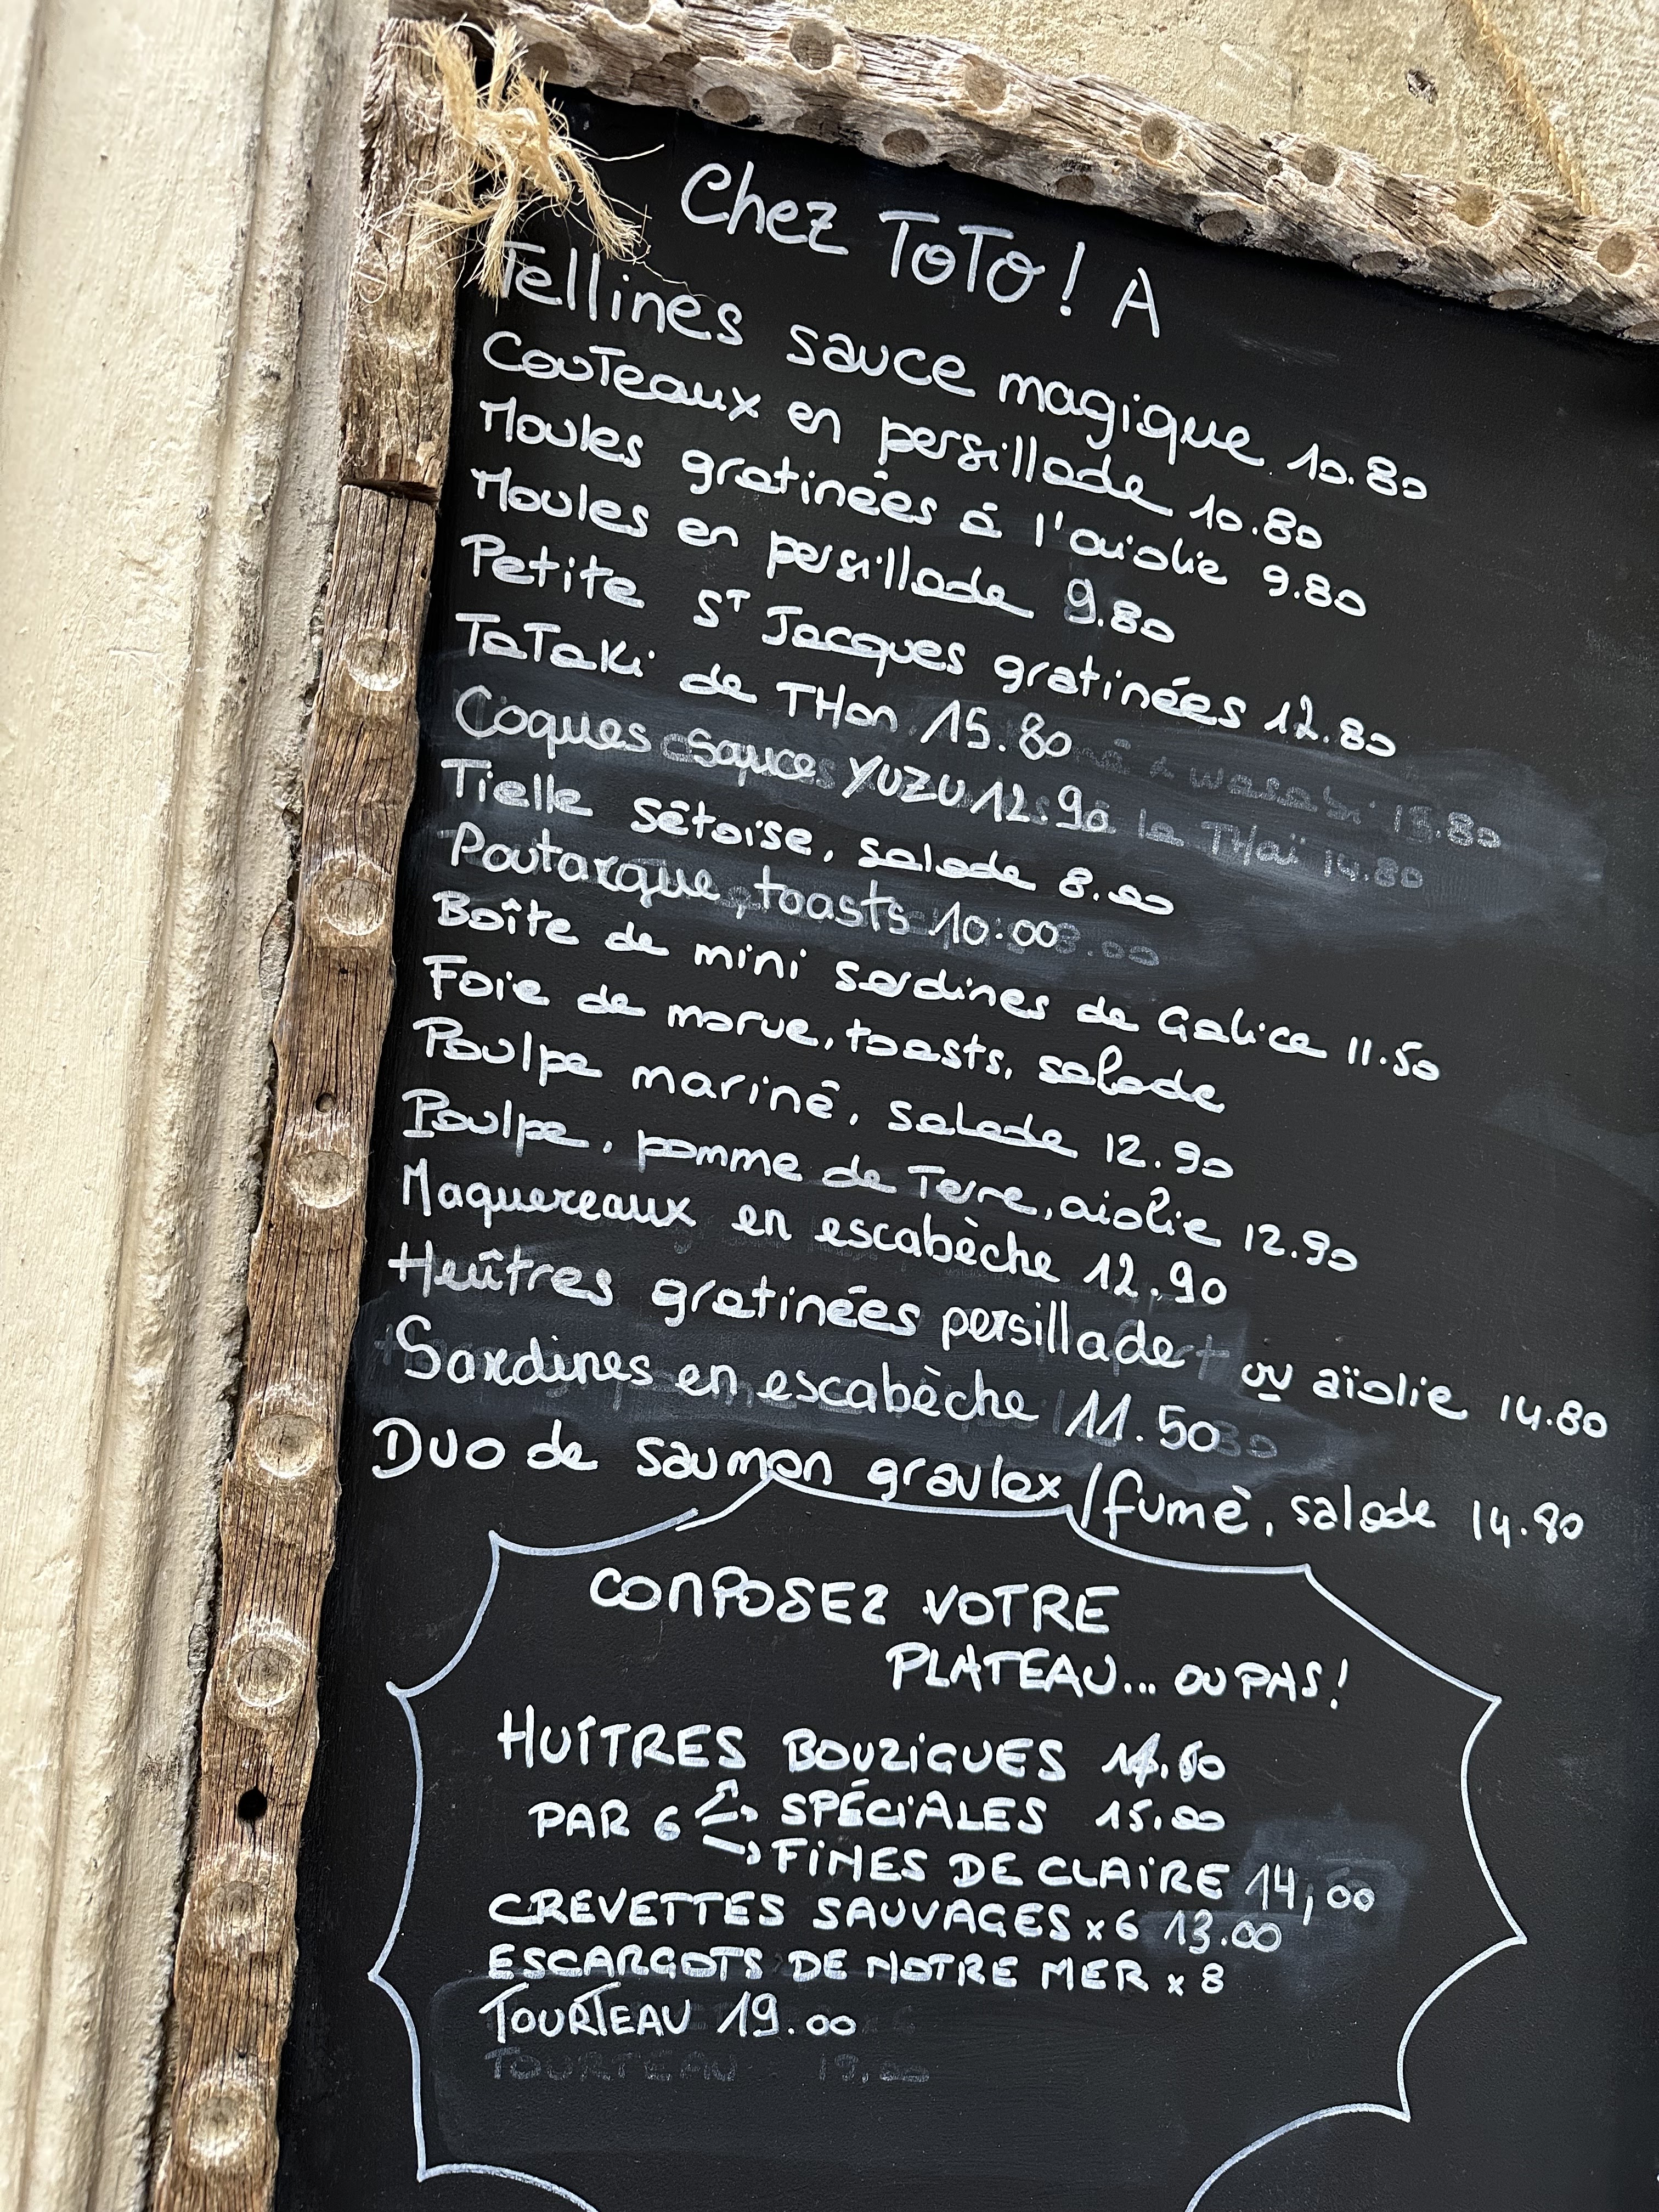 Chez Toto! A
Tellines sauce magique 10.80
Couteaux en persillade 10.80
Moules gratinées à l'aïolie 9.80
Moules en persillade 9.80
Petite St Jacques gratinées 12.80
Tataki de THon 15.80 wasabi 15.80
Coques sauce YUZU 12.90 à la THaï 14.80
Tielle sétoise, salade 8.00
Poutargue, toasts 10.00
Boîte de mini sardines de Galice 11.50
Foie de morue, toasts, salade
Poulpe mariné, salade 12.90
Poulpe, pomme de Terre, aiolie 12.90
Maquereaux en escabèche 12.90
Huîtres gratinées persillade ou aïolie 14.80
Sardines en escabèche 11.50
Duo de saumon gravlax / fumé, salade 14.80
COMPOSEZ VOTRE
PLATEAU... OU PAS!
HUÎTRES BOUZIGUES
PAR 6 SPÉCIALES 15.00
FINES DE CLAIRE 14,00
CREVETTES SAUVAGES x 6 13.00
ESCARGOTS DE NOTRE MER x 8
TOURTEAU 19.00
TOURTEAU 19.00